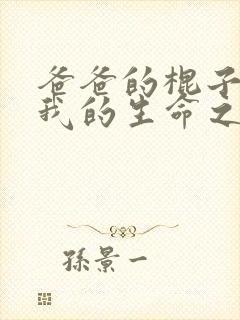 爸爸的棍子
我的生命之
孫景一